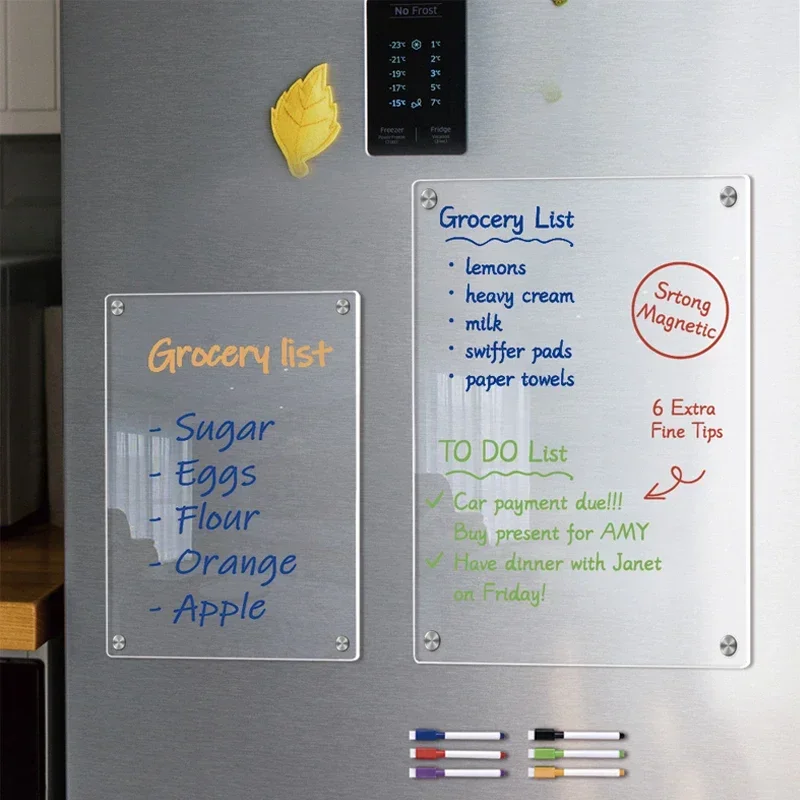 No Frost
-23°C 1°C
-21°C 2°C
-19°C 3°C
-17°C 5°C
-15°C 7°C
Freezer Fridge
Grocery list
- Sugar
- Eggs
- Flour
- Orange
- Apple
Grocery List
• lemons
• heavy cream
• milk
• swiffer pads
• paper towels
Srtong
Magnetic
6 Extra
Fine Tips
TO DO List
✓ Car payment due!!!
Buy present for AMY
✓ Have dinner with Janet
on Friday!